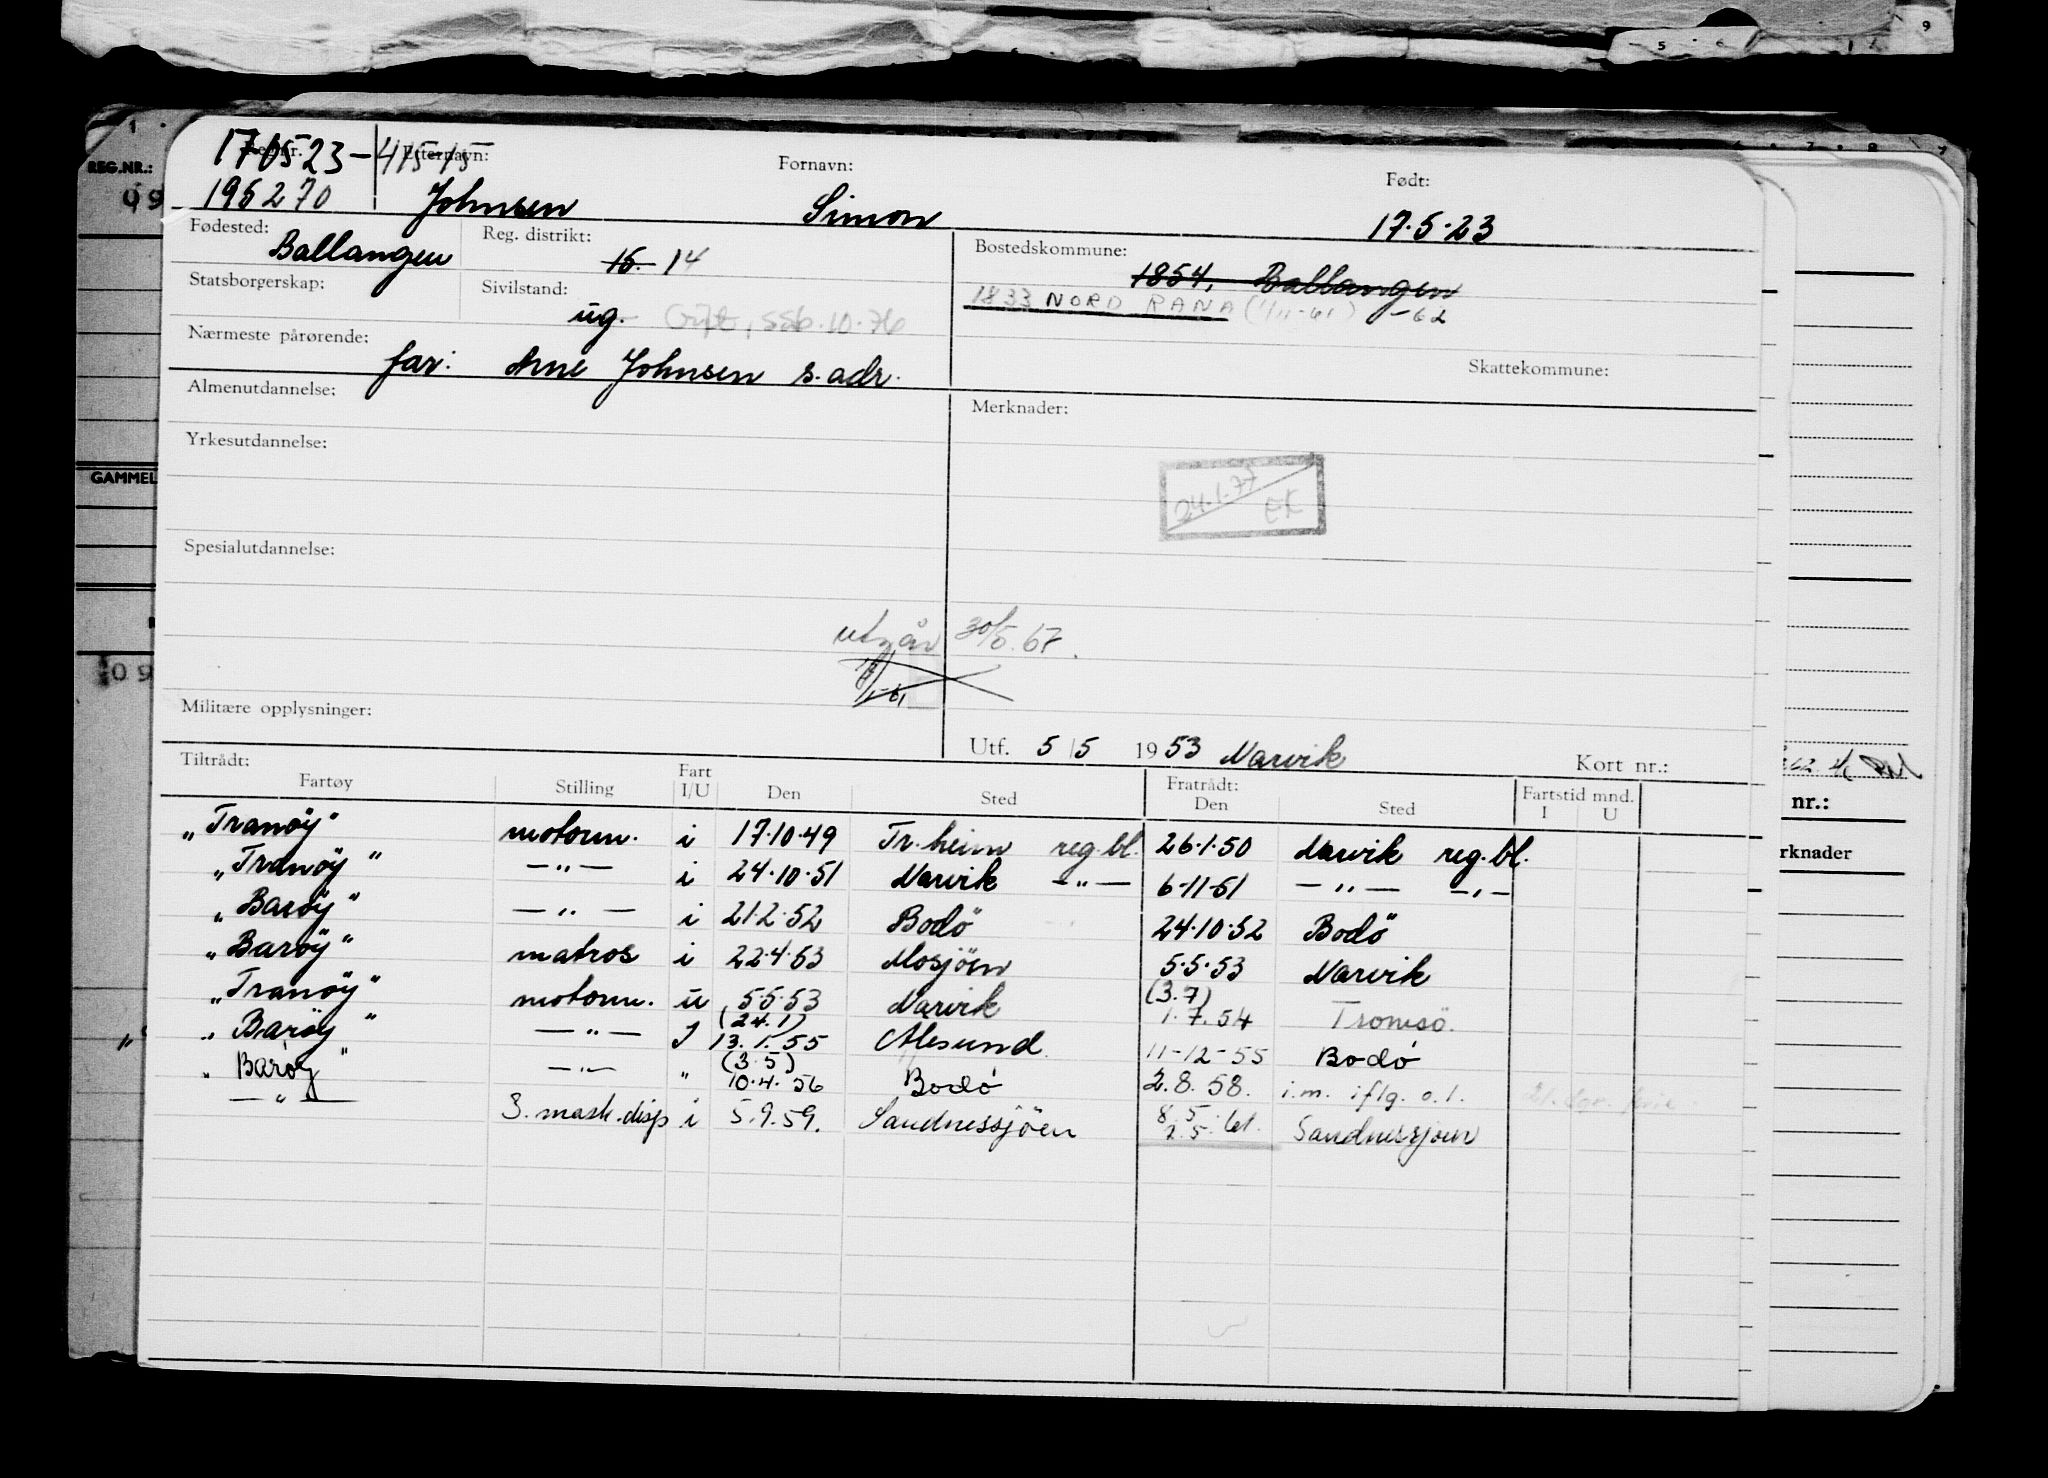 170523-41515
Reg.nr. Etternavn: Fornavn: Født:
195270 Johnsen Simon 17.5.23
Fødested: Ballangen Reg. distrikt: 15. 14 Bostedskommune: 1854, Ballangen
1833 NORD RANA (1/11-61) -62
Statsborgerskap: Sivilstand: ug. Gift, SSB.10.76
Nærmeste pårørende: far: Arne Johnsen s. adr.
Skattekommune:
Almenutdannelse: Merknader:
Yrkesutdannelse:
24.1.77 EK
Spesialutdannelse:
utgår 30/5.67.
Militære opplysninger:
Utf. 5/5 1953 Narvik Kort nr.:
Tiltrådt: Fratrådt: Fartstid mnd.
Fartøy Stilling Fart I/U Den Sted Den Sted I U
"Tranöy" motorm. i 17.10.49 Tr.heim reg.bl. 26.1.50 Narvik reg.bl.
"Tranöy" —"— i 24.10.51 Narvik —"— 6.11.51 —"— —"—
"Baröy" —"— i 21.2.52 Bodö 24.10.52 Bodö
"Baröy" matros i 22.4.53 Mosjöen 5.5.53 Narvik
"Tranöy" motorm. u 5.5.53 Narvik (3.7) 1.7.54 Tromsö.
"Baröy" —"— I (24.1) 13.1.55 Ålesund 11-12-55 Bodó
"Baröy" —"— " (3.5) 10.4.56 Bodó 2.8.58. i.m. iflg. o.l.
—"— 3. mask.disp i 5.9.59. Sandnessjöen 8.5. 2.5.61. Sandnessjoen
REG.NR.:
09
GAMMEL
09
nr.:
rknader